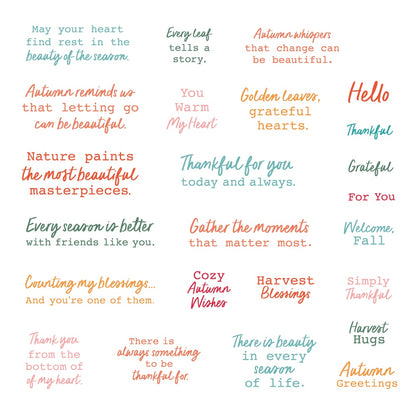 May your heart
find rest in the
beauty of the season.
Every leaf
tells a
story.
Autumn whispers
that change can
be beautiful.
Autumn reminds us
that letting go
can be beautiful.
You
Warm
My Heart
Golden leaves,
grateful
hearts.
Hello
Thankful
Nature paints
the most beautiful
masterpieces.
Thankful for you
today and always.
Grateful
For You
Every season is better
with friends like you.
Gather the moments
that matter most.
Welcome,
Fall
Counting my blessings...
And you're one of them.
Cozy
Autumn
Wishes
Harvest
Blessings
Simply
Thankful
Thank you
from the
bottom of
of my heart.
There is
always something
to be
thankful for.
There is beauty
in every
season
of life.
Harvest
Hugs
Autumn
Greetings